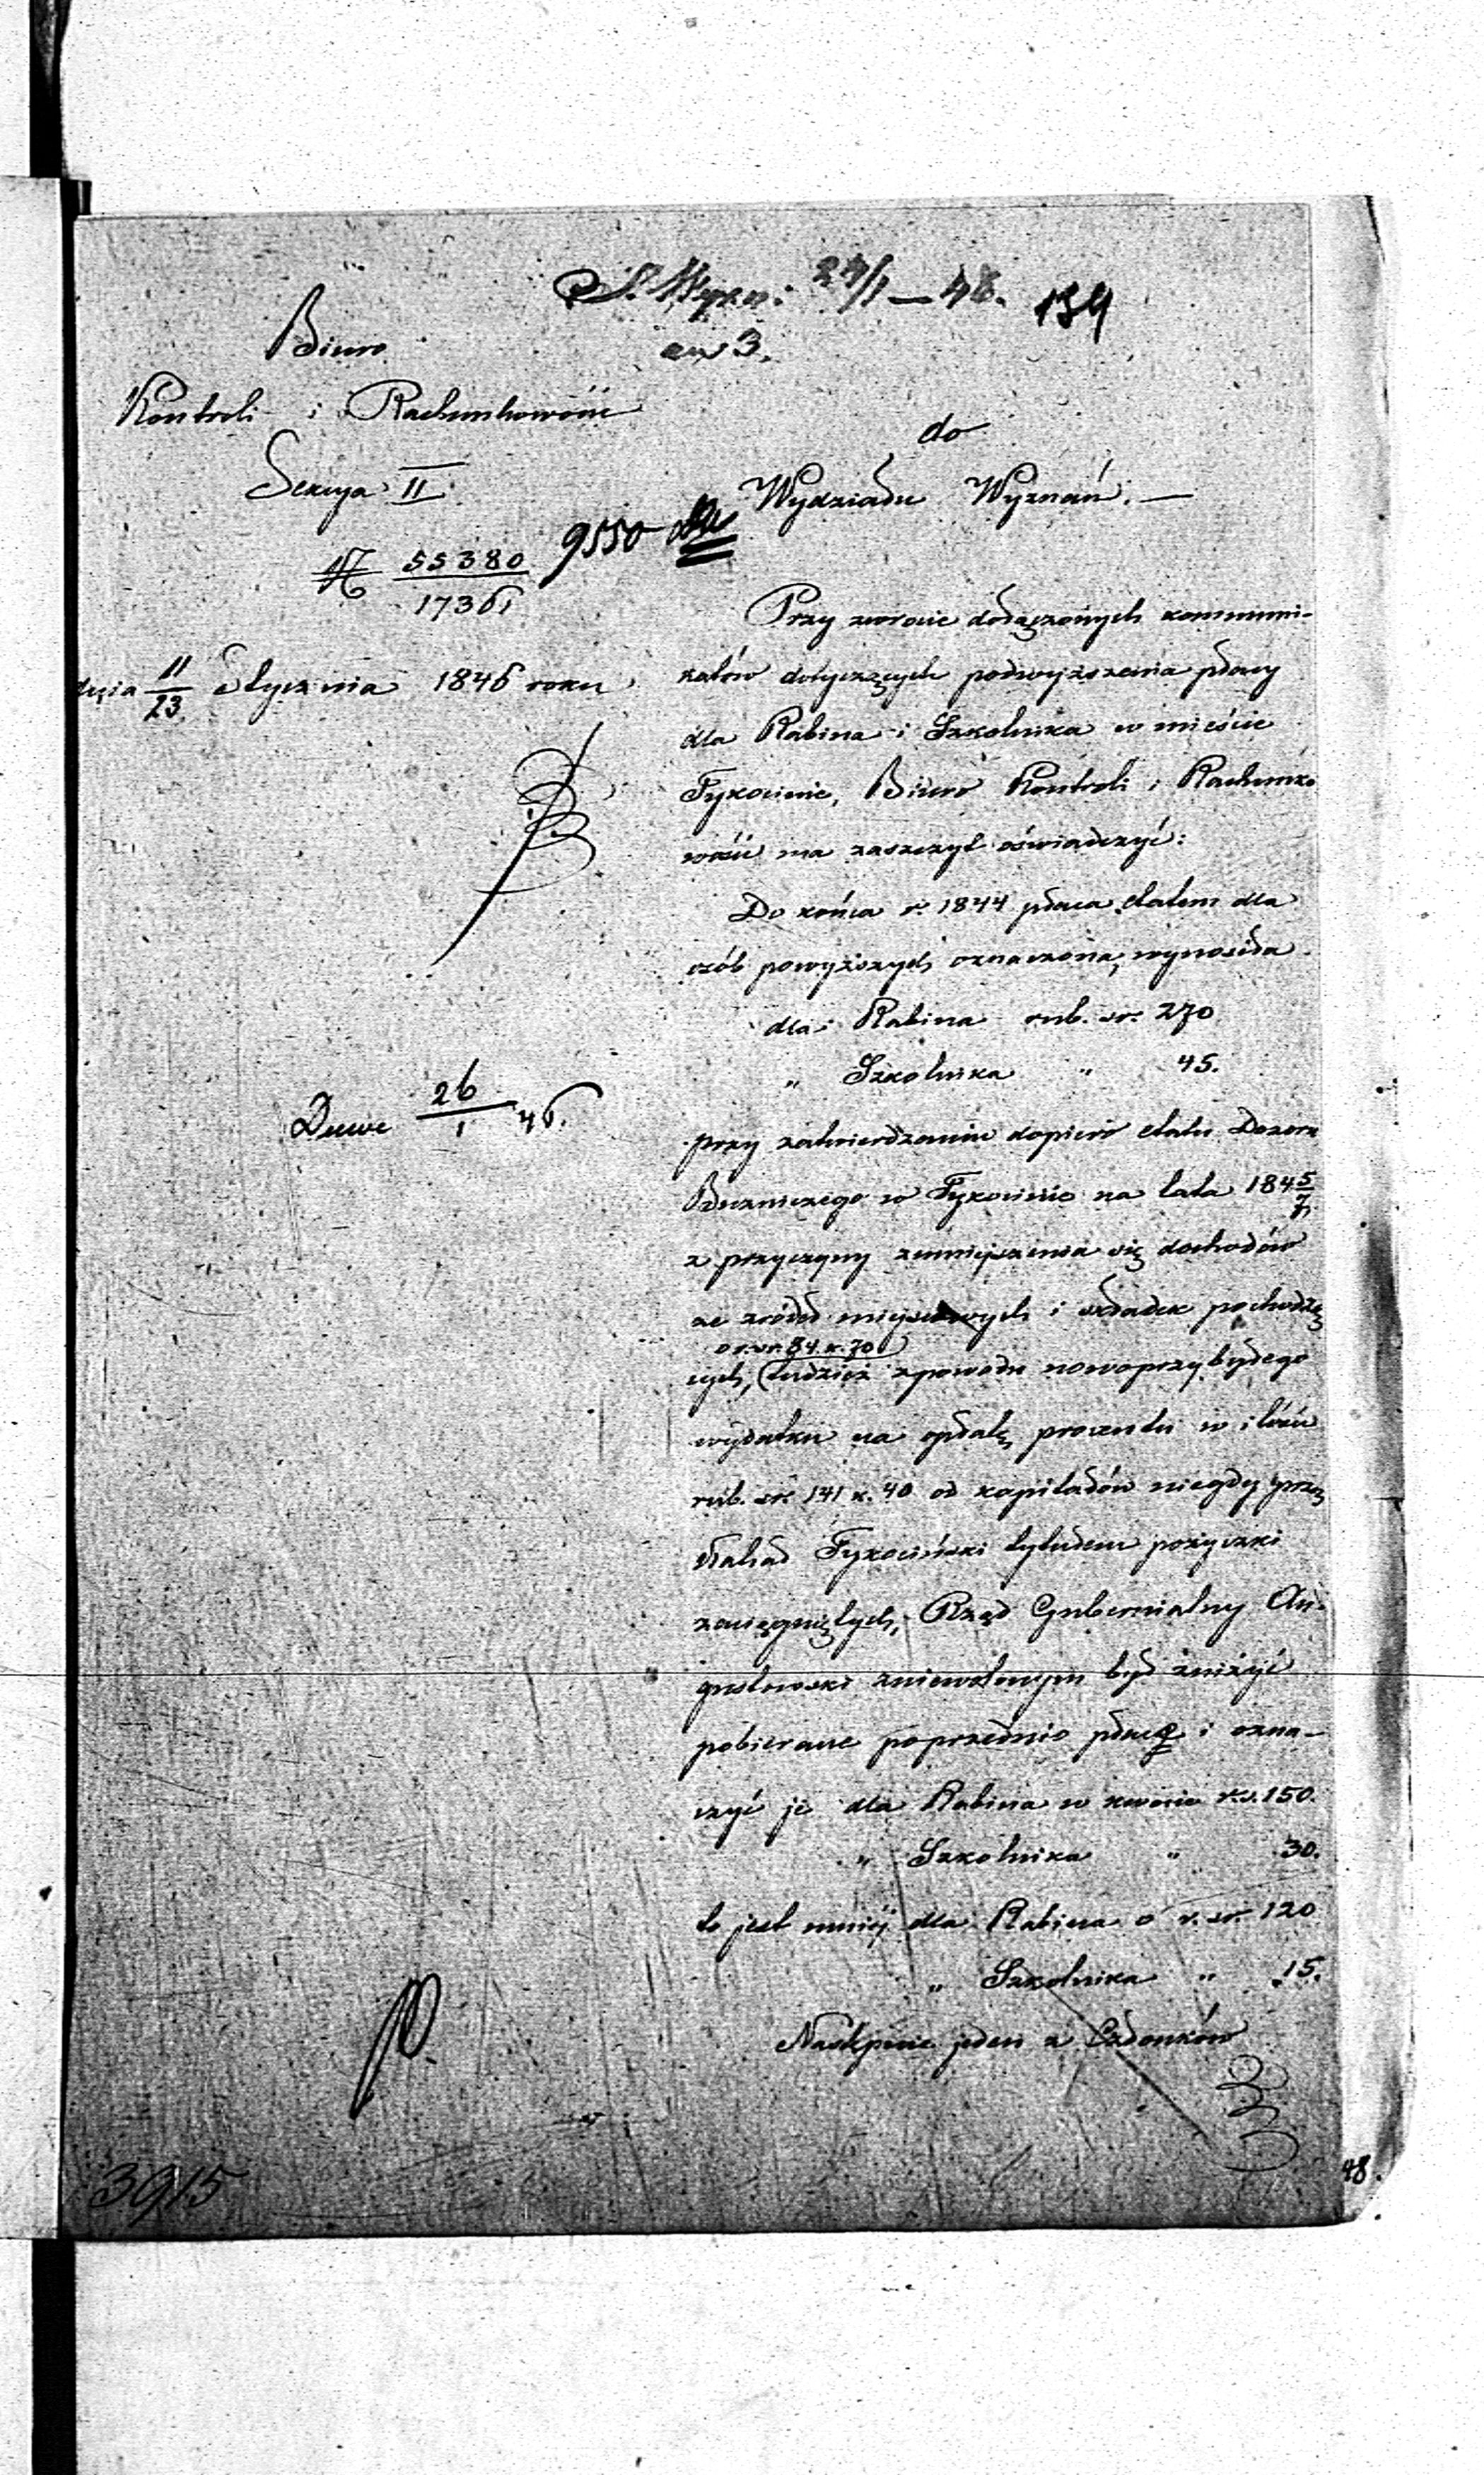 27/1 — 46. 139
Biuro
Kontroli i Rachunkowości
Sekcya II
№ 55380/17361
9550
dnia 11/23 Stycznia 1846 roku
26/1 46.
do
Wydziału Wyznań. —
Przy zwrocie dołączonych kommuni-
katów dotyczących podwyższenia płacy
dla Rabina i Szkolnika w mieście
Tykocinie, Biuro Kontroli i Rachunko
wości ma zaszczyt oświadczyć:
Do końca r. 1844 płaca etatem dla
osób powyższych oznaczona, wynosiła
dla Rabina rub. sr. 270
„ Szkolnika „ 45.
przy zatwierdzeniu dopiero etatu Dozoru
Bużniczego w Tykocinie na lata 1845/7
z przyczyny zmniejszenia się dochodów
ze źródeł miejscowych i składek pochodzą
o r. sr. 84 k. 70
cych, tudzież zpowodu nowoprzybyłego
wydatku na opłatę procentu w ilości
rub. sr. 141 k. 40 od kapitałów niegdy przez
Kahał Tykociński tytułem pożyczki
zaciągniętych, Rząd Gubernialny Au-
gustowski zniewolonym był zniżyć
pobierane poprzednio płace i ozna-
czyć je dla Rabina w kwocie r.s. 150.
„ Szkolnika „ 30.
to jest mniej dla Rabina o r. sr. 120
„ Szkolnika „ 15.
Następnie jeden z Członków
3915
48.